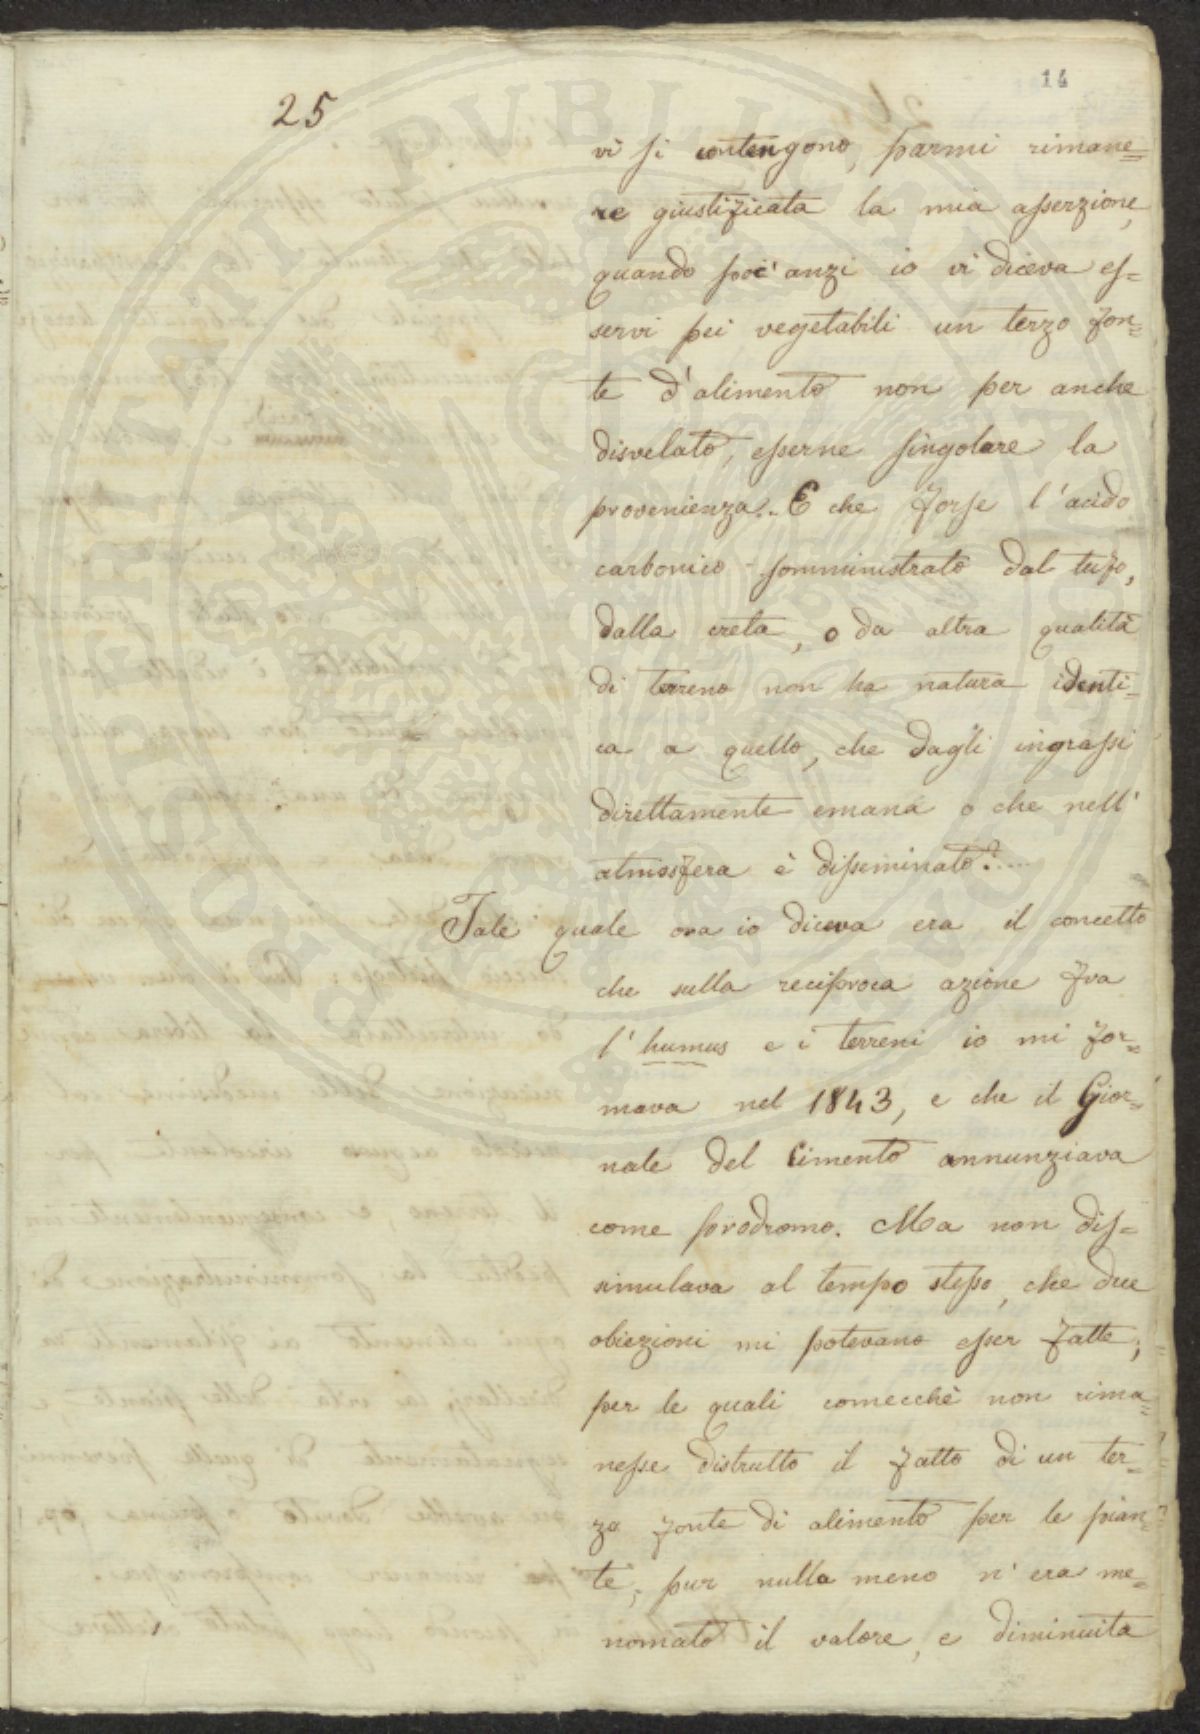 14
25
vi si contengono, parmi rimane=
re giustificata la mia asserzione,
quando poc'anzi io vi diceva es=
servi pei vegetabili un terzo fon=
te d'alimento non per anche
disvelato, esserne singolare la
provenienza.. E che forse l'acido
carbonico somministrato dal tufo,
dalla creta, o da altra qualità
di terreno non ha natura identi=
ca a quello, che dagli ingrassi
direttamente emana o che nell'
atmosfera è disseminato?....
Tale quale ora io diceva era il concetto
che sulla reciproca azione fra
l'humus e i terreni io mi for=
mava nel 1843, e che il Gior=
nale del Cimento annunziava
come prodromo. Ma non dis=
simulava al tempo stesso, che due
obiezioni mi potevano esser fatte;
per le quali comecchè non rima=
nesse distrutto il fatto di un ter=
zo fonte di alimento per le pian=
te, pur nulla meno n'era me=
nomato il valore, e diminuita